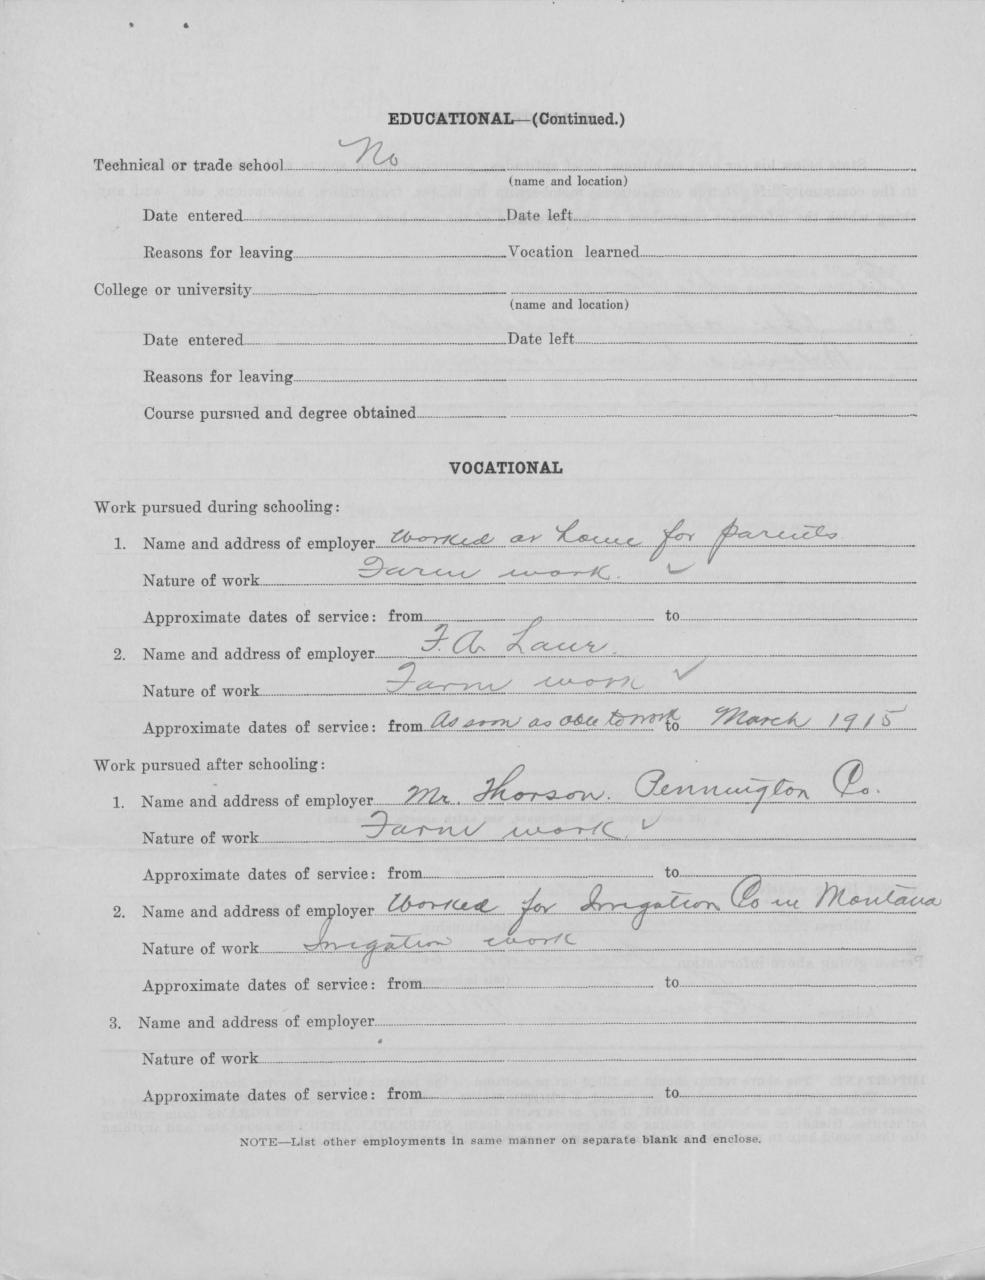 EDUCATIONAL—(Continued.)
Technical or trade school No
(name and location)
Date entered Date left
Reasons for leaving Vocation learned
College or university
(name and location)
Date entered Date left
Reasons for leaving
Course pursued and degree obtained
VOCATIONAL
Work pursued during schooling:
1. Name and address of employer Worked at home for parents
Nature of work Farm work. ✓
Approximate dates of service: from to
2. Name and address of employer F. A. Laur.
Nature of work Farm work ✓
Approximate dates of service: from As soon as able to work to March 1915
Work pursued after schooling:
1. Name and address of employer Mr. Thorson. Pennington Co.
Nature of work Farm work. ✓
Approximate dates of service: from to
2. Name and address of employer Worked for Irrigation Co in Montana
Nature of work Irrigation work
Approximate dates of service: from to
3. Name and address of employer
Nature of work
Approximate dates of service: from to
NOTE—List other employments in same manner on separate blank and enclose.